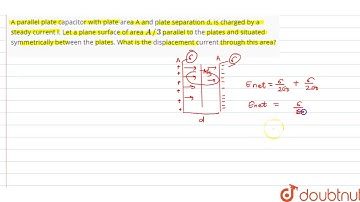 A parallel plate capacitor with plate area A and plate separation d, is charged by a
steady current I. Let a plane surface of area A/3 parallel to the plates and situated
symmetrically between the plates. What is the displacement current through this area?
A σ A σ
A/3
E net = σ/2ε0 + σ/2ε0
E net = σ/ε0
d
doubtnut